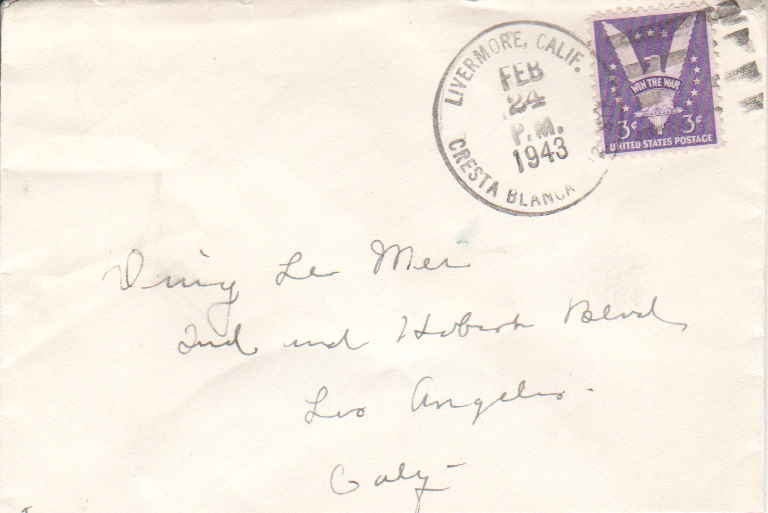 LIVERMORE, CALIF.
FEB
24
P.M.
1943
CRESTA BLANCA
WIN THE WAR
3¢ 3¢
UNITED STATES POSTAGE
Le Mer
2nd and Hobart Blvd
Los Angeles.
Calif